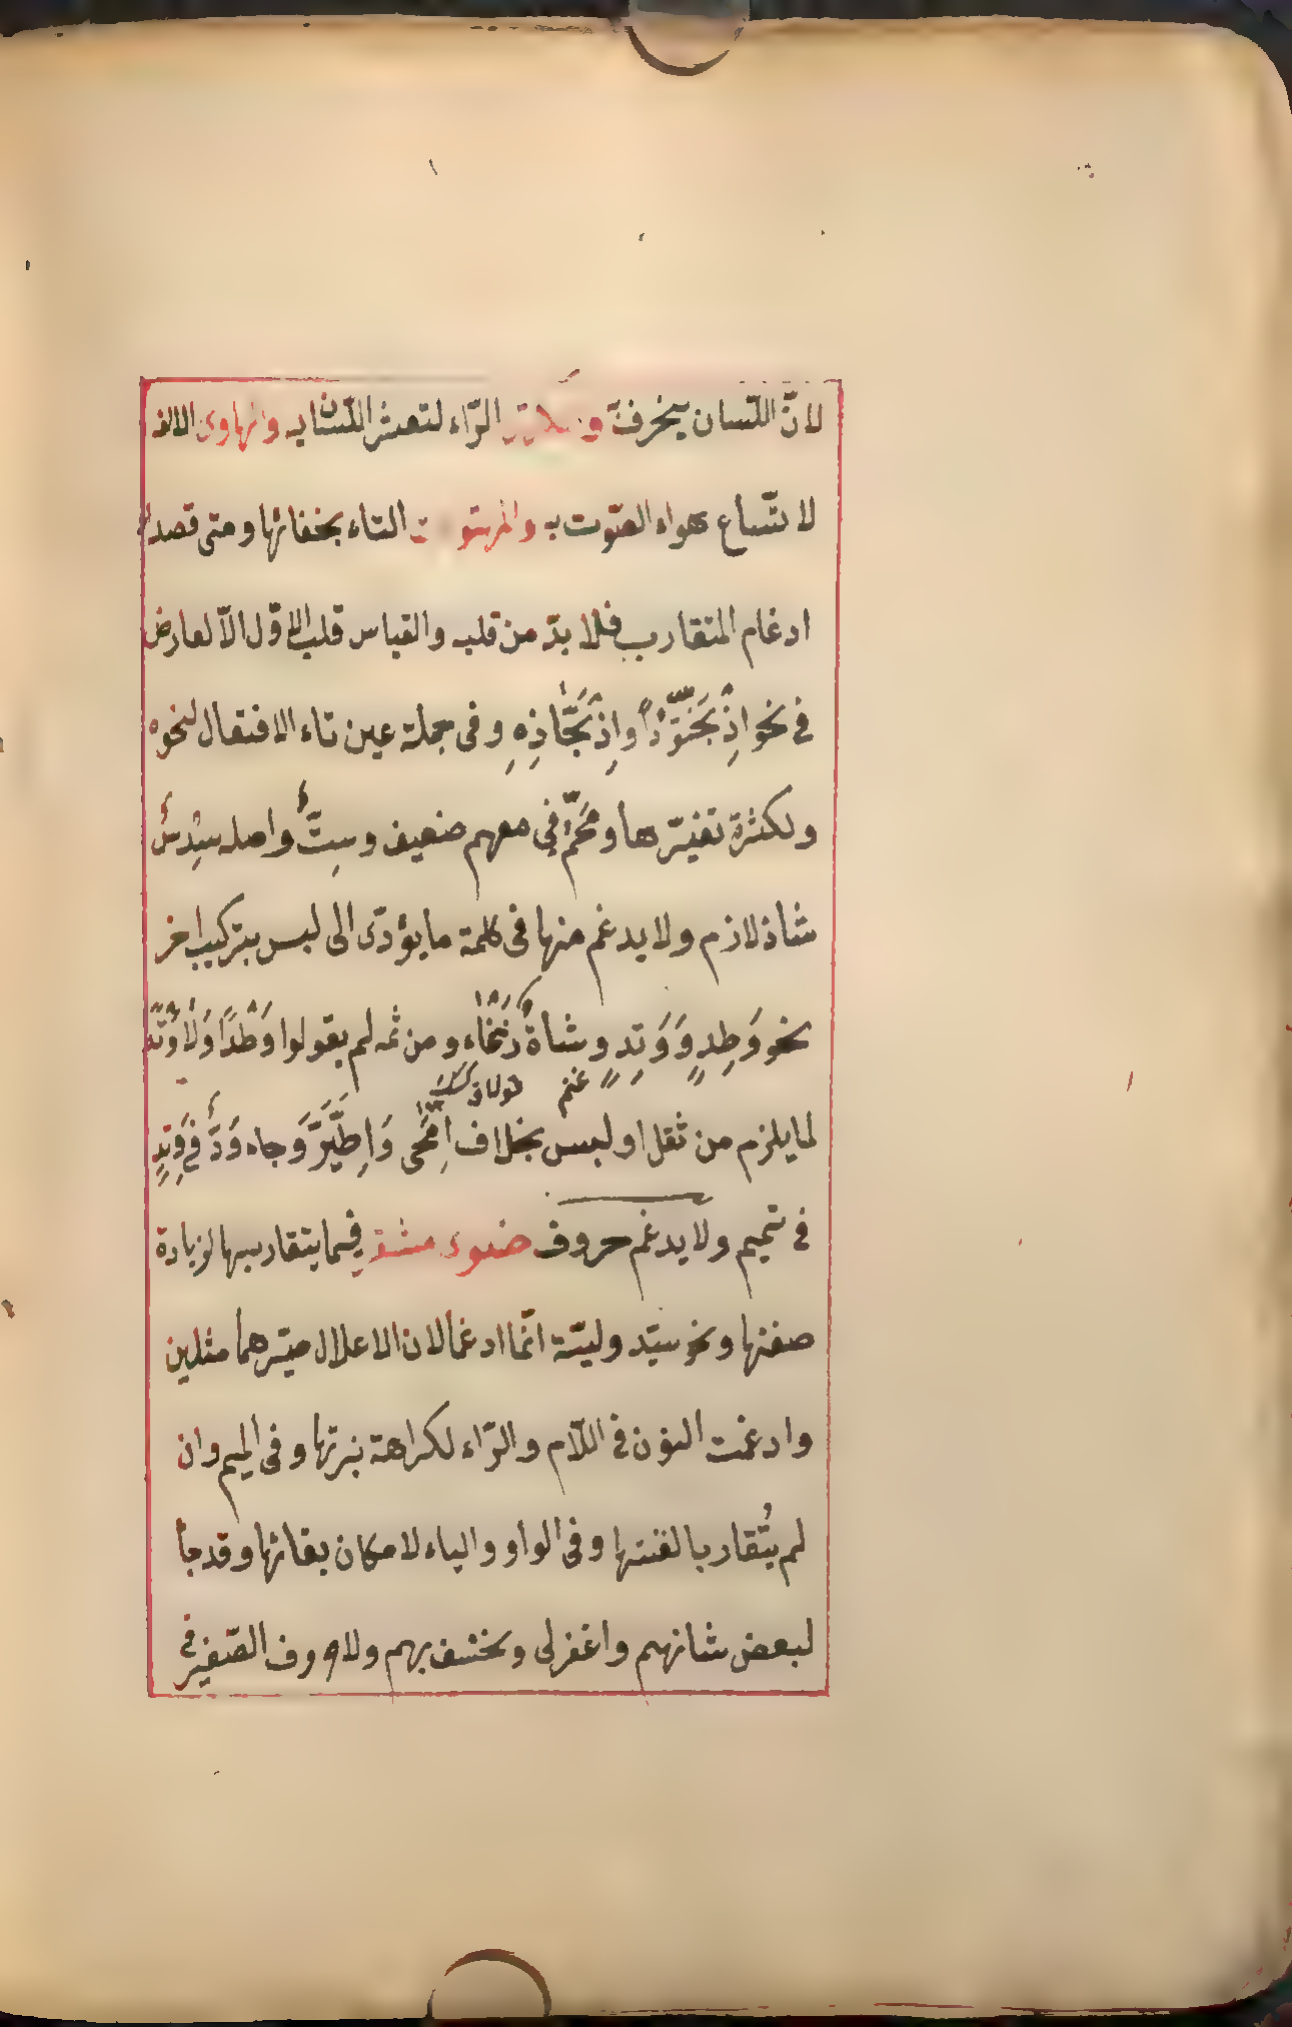 لانّ اللّسان ينحرف به والمكرّر الرّاء لتعثر اللّسان به والهاوى الالف
لاتّساع هواء الصّوت به والمهتوت التاء بخفائها ومتى قصد
ادغام المتقارب فلا بدّ من قلب والقياس قلب الاوّل الاّ لعارض
فى نحو اِذْبَحَّتّوْداً واِذْبَحَّاذِهِ وفى جملة عين تاء الافتعال لنحوه
ولكثرة تغيّرها ومَحُّمْ فى معهم ضعيف وسِتٌّ واصله سِدْسٌ
شاذ لازم ولا يدغم منها فى كلمة ما يؤدّى الى لبس بتركيب اخر
نحو وَطِدٍ وَوَتِدٍ وشاةٌ زَنْمَاء ومن ثمه لم يقولوا وَطْدًا وَلا وَتْدً
غنم
لما يلزم من ثقل او لبس بخلاف اِمَّحَى وَاِطَّيَّرَ وجاء وَدٌّ فى وَتِدٍ
فى تميم ولا يدغم حروف ضوى مشفر فيما يتقاربها لزيادة
صفتها ونحو سيّد وليّة انّما ادغما لان الاعلال صيّرهما مثلين
وادغمت النون فى اللاّم والرّاء لكراهة نبرتها وفى الميم وان
لم يتقاربا لغنتها وفى الواو والياء لامكان بقائها وقد جأ
لبعض شانهم واغفرلى ونخسف بهم ولا حروف الصّفير فى